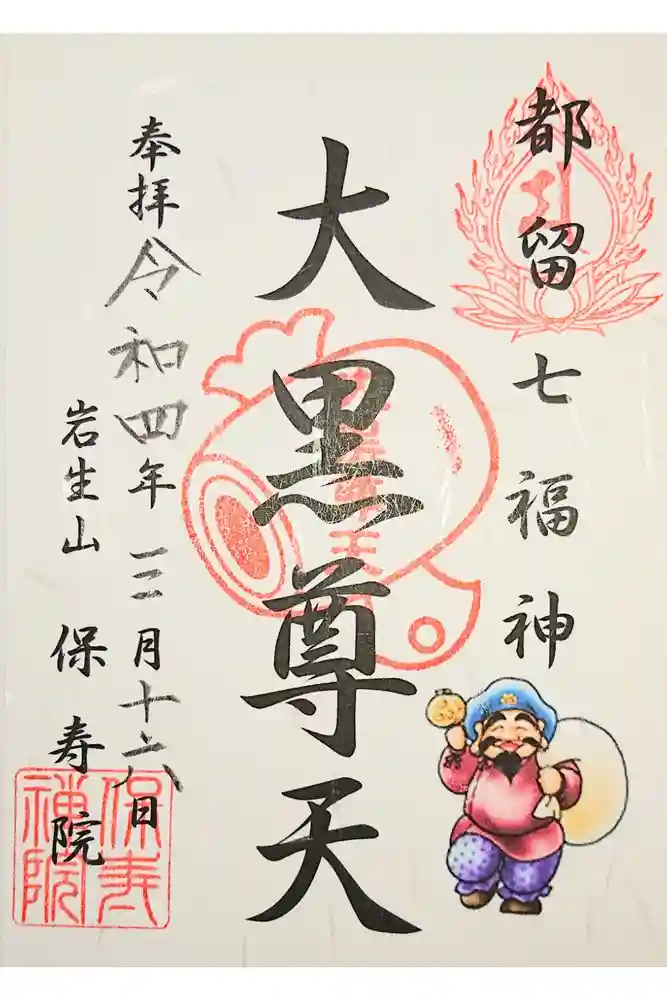 都留
七福神
大黒尊天
奉拝 令和四年三月十六日
岩生山 保寿院
保寿禅院